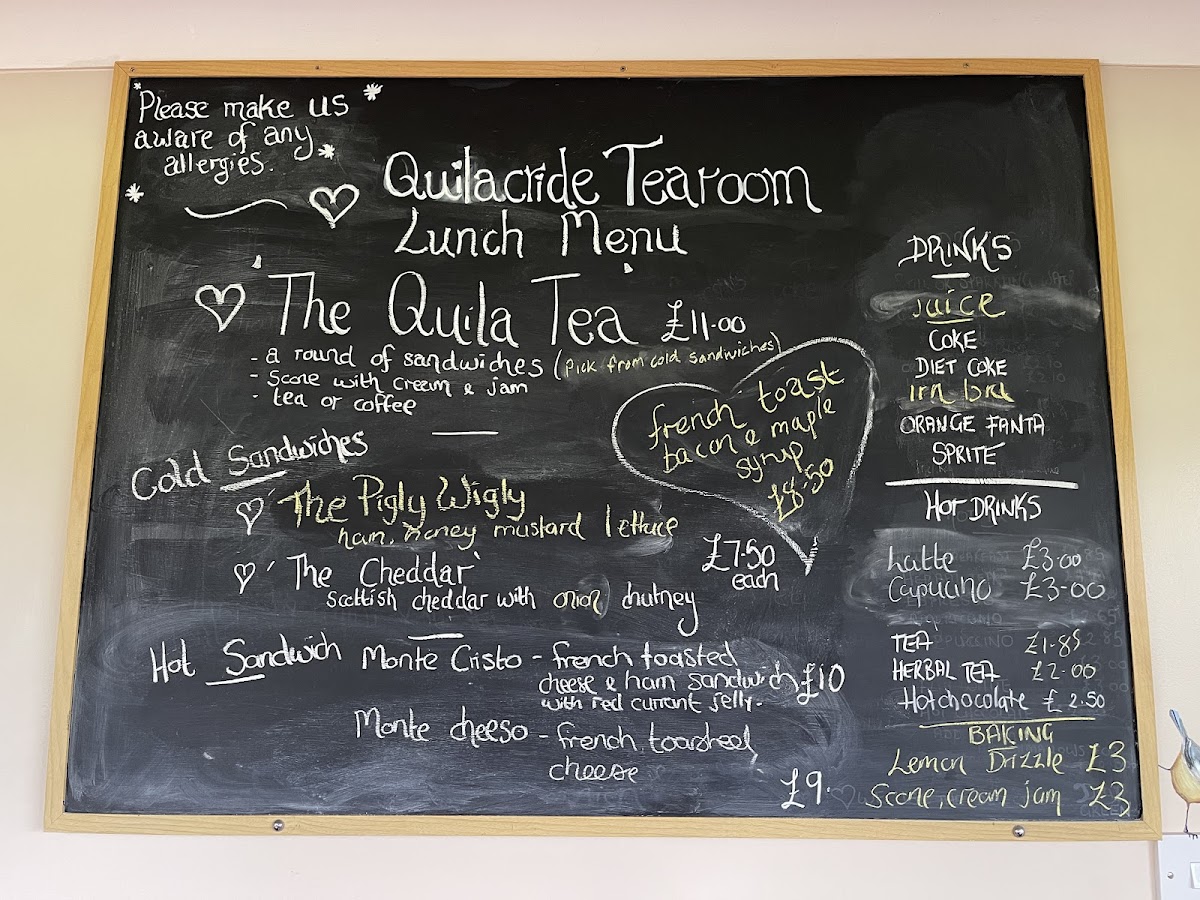 Please make us
aware of any
allergies.
Quilacride Tearoom
Lunch Menu
The Quila Tea £11.00
- a round of sandwiches (Pick from cold sandwiches)
- Scone with cream & jam
- tea or coffee
french toast
bacon & maple
syrup
£8.50
Cold Sandwiches
The Pigly Wigly
ham, honey mustard lettuce
£7.50
each
The Cheddar
Scottish cheddar with onion chutney
Hot Sandwich Monte Cristo - french toasted
cheese & ham sandwich £10
with red currant jelly.
Monte cheeso - french toasted
cheese
£9.
DRINKS
Juice
COKE
DIET COKE
Irn bru
ORANGE FANTA
SPRITE
HOT DRINKS
Latte £3.00
Capucino £3.00
TEA £1.85
HERBAL TEA £2.00
Hot chocolate £2.50
BAKING
Lemon Drizzle £3
Scone, cream jam £3